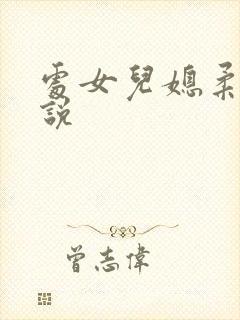 處女兒媳柔
說
曾志偉